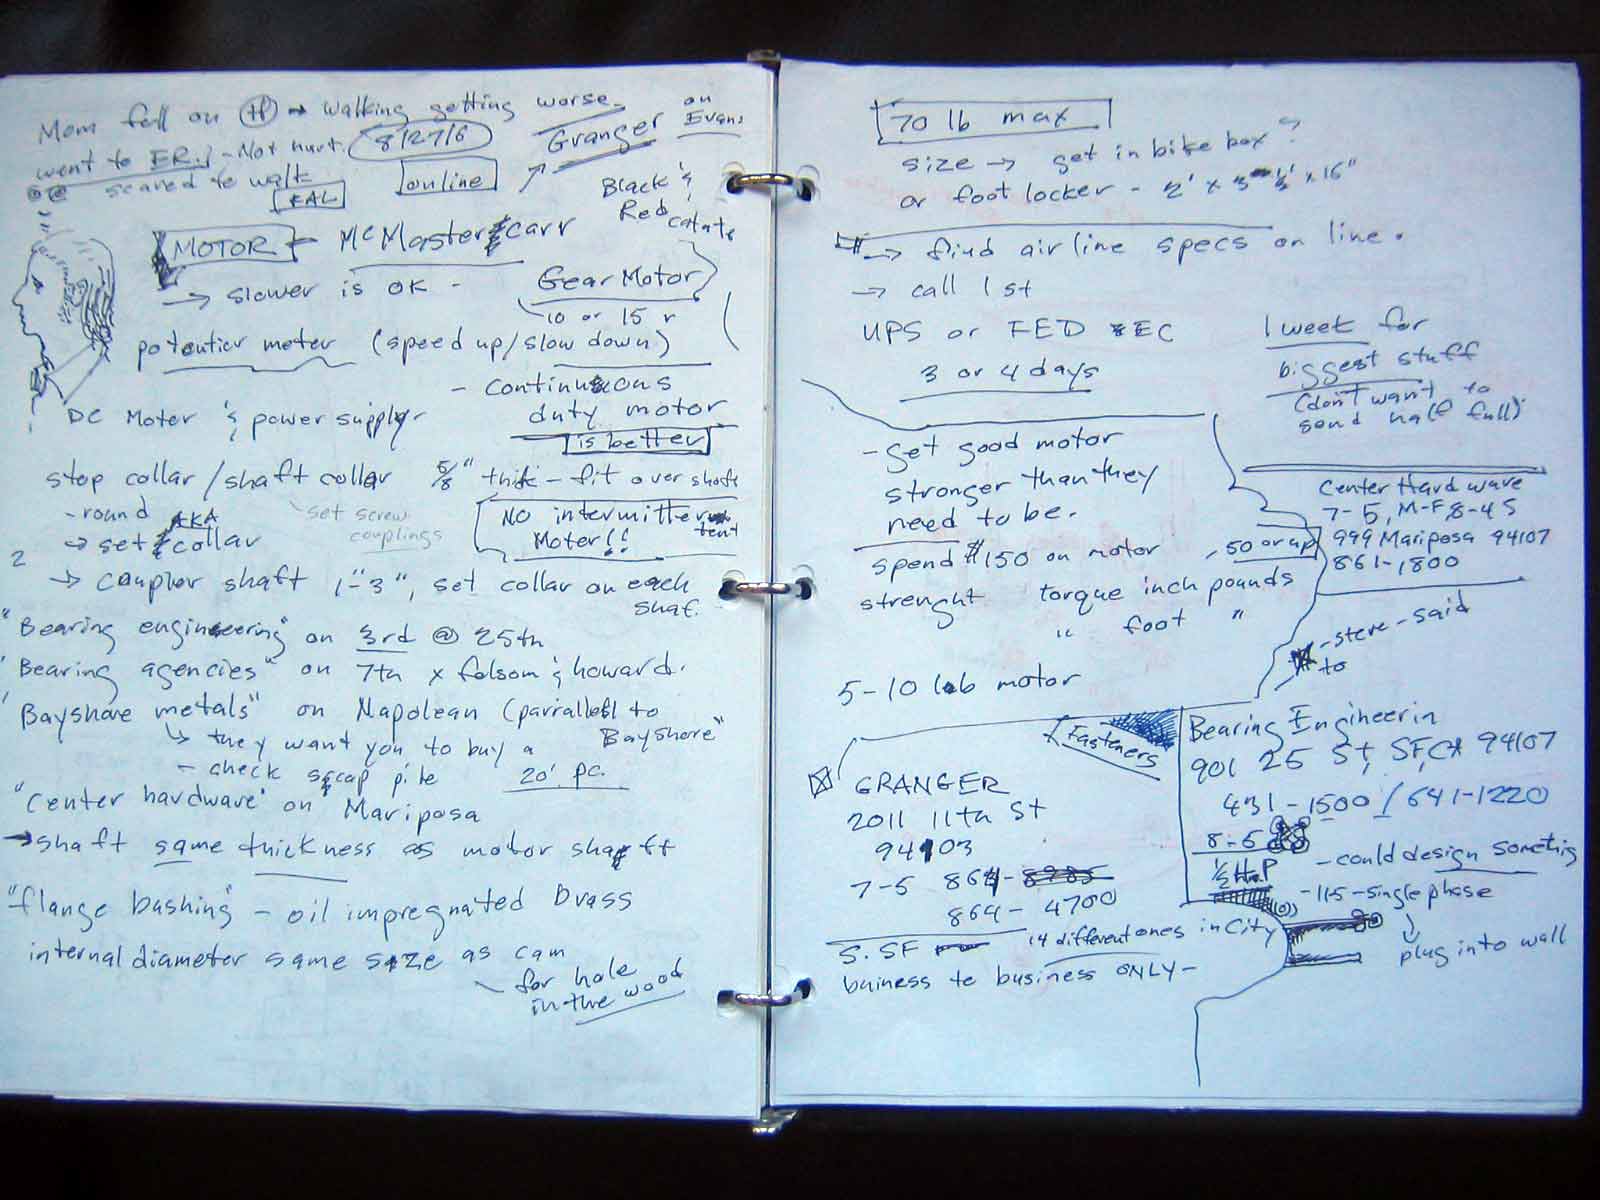 Mom fell on TH → walking getting worse.
went to ER. - Not hurt. 8/27/6
scared to walk
KAL
online
Granger on Evans
Black & Red catate
MOTOR - McMaster & carr
→ slower is OK -
Gear Motor
10 or 15 r
potentier meter (speed up/slow down)
- continuous
duty motor
is better
DC Moter & power supply-
stop collar/shaft collar 5/8" thik - fit over shaft
- round AKA
→ set & collar
- set screw
couplings
No intermitter tent
Moter!!
2
→ coupler shaft 1"-3", set collar on each
shaf.
"Bearing engineering" on 3rd @ 25th
"Bearing agencies" on 7th x folsom & howard.
"Bayshore metals" on Napolean (parrallel to
Bayshore"
↳ they want you to buy a
- check scrap pile 20' pc.
"Center hardware" on Mariposa
→ shaft same thickness as motor shaft
"flange bushing" - oil impregnated Brass
internal diameter same size as cam
- for hole
in the wood
70 lb max
size → get in bike box?
or foot locker - 2' x 3 ½' x 16"
→ find airline specs on line.
→ call 1st
UPS or FED EC
3 or 4 days
1 week for
biggest stuff
(don't want to
send half full)
- get good motor
stronger than they
need to be.
spend $150 on motor , 50 or up
strenght torque inch pounds
" foot "
5-10 lb motor
Center Hardware
7-5, M-F, 8-4 S
999 Mariposa 94107
861-1800
- steve - said
to
Fasteners
GRANGER
2011 11th St
94103
7-5 864-8985
864-4700
S. SF 14 different ones in City
buiness to business ONLY -
Bearing Engineerin
901 25 St, SF, CA 94107
431-1500 / 641-1220
8-5
½ H.P - could design somethig
- 115 - single phase
plug into wall